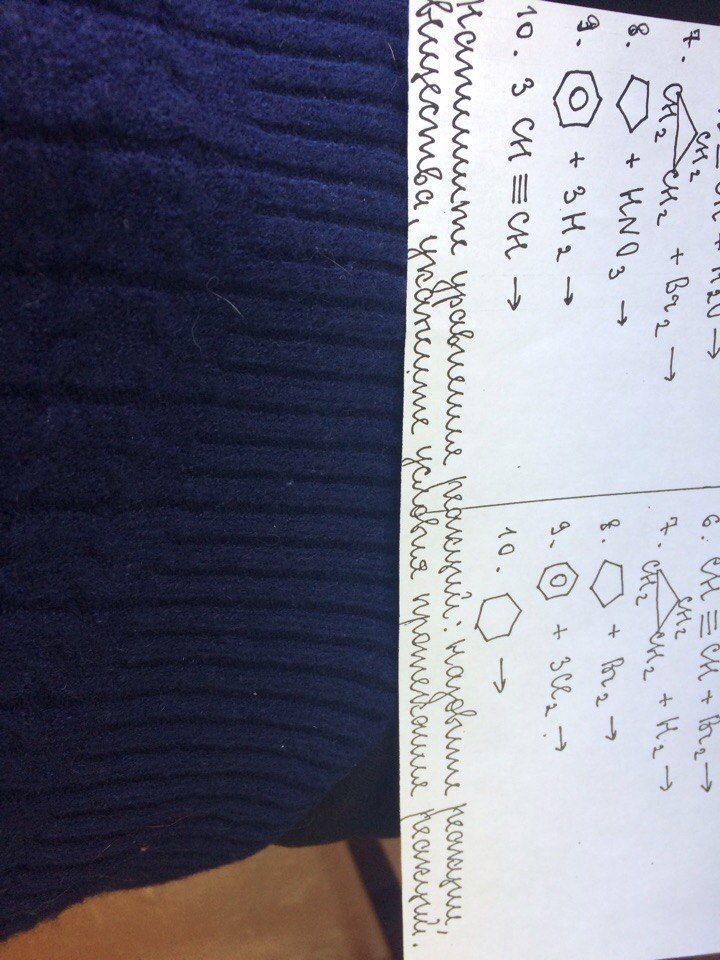 CH + H₂O →
7. CH₂ CH₂ CH₂ + Br₂ →
8. + HNO₃ →
9. + 3H₂ →
10. 3 CH ≡ CH →
6. CH ≡ CH + Br₂ →
7. CH₂ CH₂ CH₂ + H₂ →
8. + Br₂ →
9. + 3Cl₂ →
10. →
Напишите уравнение реакций: назовите реакции,
вещества, укажите условия протекания реакций.